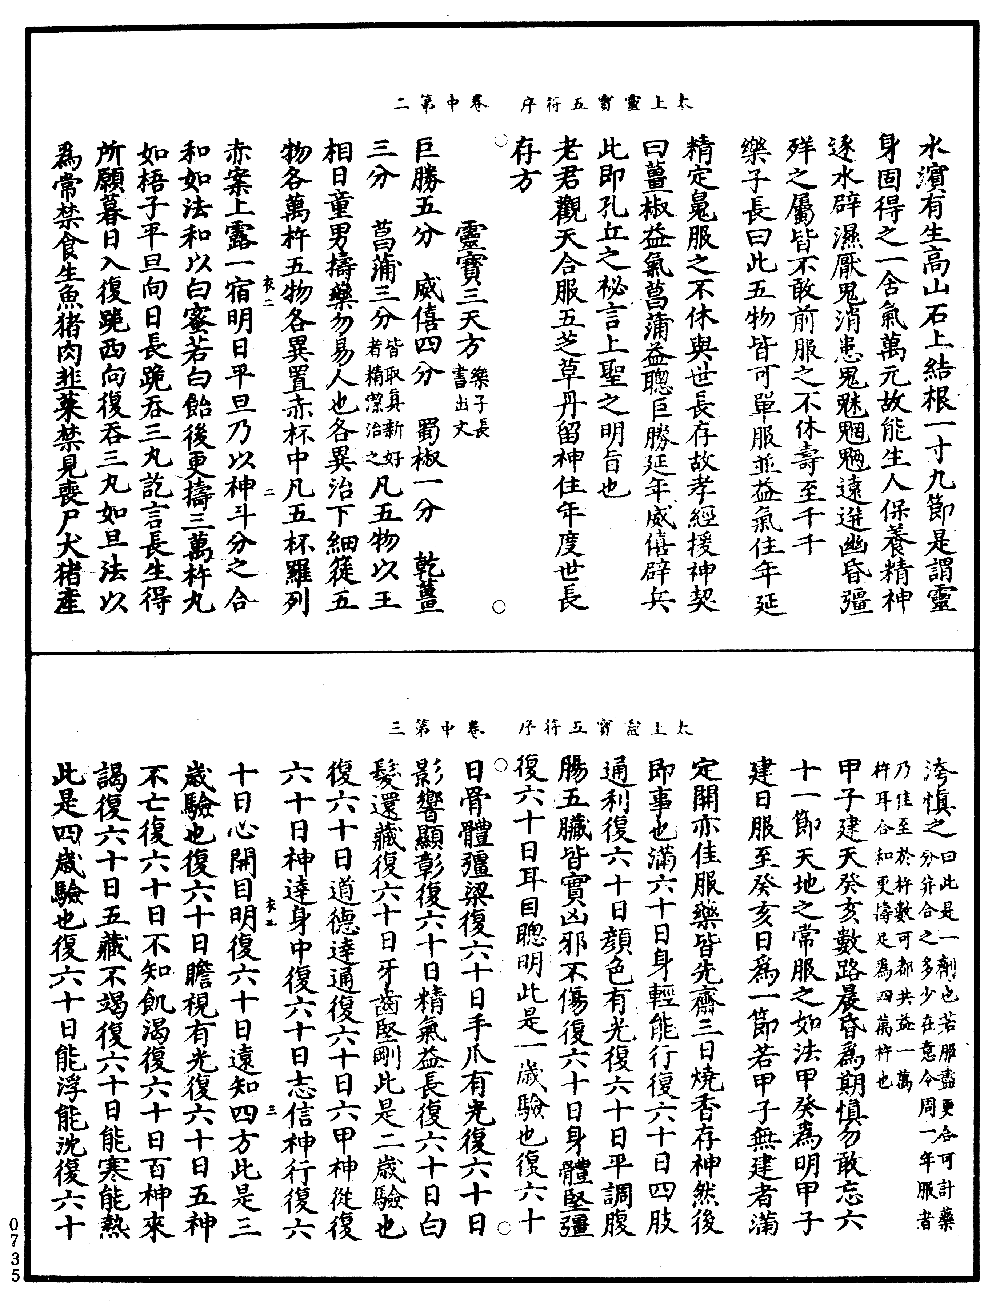 太上靈寶五符序　卷中第二
水濱有生高山石上結根一寸九節是謂靈
身固得之一含氣萬元故能生人保養精神
逐水辟濕厭鬼消患鬼魅魍魎遠逃幽昏殭
殍之屬皆不敢前服之不休壽至千千
樂子長曰此五物皆可單服並益氣住年延
精定魂服之不休與世長存故孝經援神契
曰薑椒益氣菖蒲益聰巨勝延年威僖辟兵
此即孔丘之祕言上聖之明旨也
老君觀天合服五芝草丹留神住年度世長
存方
靈寶三天方樂子長
書出文
巨勝五分　威僖四分　蜀椒一分　乾薑
三分　菖蒲三分皆取真新好
者精潔治之凡五物以王
相日童男擣藥勿易人也各異治下細簁五
物各萬杵五物各異置赤杯中凡五杯羅列
衣二　二
赤案上露一宿明日平旦乃以神斗分之合
和如法和以白蜜若白飴後更擣三萬杵丸
如梧子平旦向日長跪吞三丸訖言長生得
所願暮日入復跪西向復吞三丸如旦法以
為常禁食生魚猪肉韭菜禁見喪尸犬猪產
太上靈寶五符序　卷中第三
洿慎之曰此是一劑也若服盡更合可計藥
分并合之多少在意令周一年服者
乃佳至於杵數可都共益一萬
杵耳合和更擣足為四萬杵也
甲子建天癸亥數路晨昏為期慎勿敢忘六
十一節天地之常服之如法甲癸為明甲子
建日服至癸亥日為一節若甲子無建者滿
定開亦佳服藥皆先齋三日燒香存神然後
即事也滿六十日身輕能行復六十日四肢
通利復六十日顏色有光復六十日平調腹
腸五臟皆實凶邪不傷復六十日身體堅彊
復六十日耳目聰明此是一歲驗也復六十
日骨體彊梁復六十日手爪有光復六十日
影響顯彰復六十日精氣益長復六十日白
髮還藏復六十日牙齒堅剛此是二歲驗也
復六十日道德達通復六十日六甲神從復
六十日神達身中復六十日志信神行復六
衣二　三
十日心開目明復六十日遠知四方此是三
歲驗也復六十日瞻視有光復六十日五神
不亡復六十日不知飢渴復六十日百神來
謁復六十日五藏不竭復六十日能寒能熱
此是四歲驗也復六十日能浮能沈復六十
0735